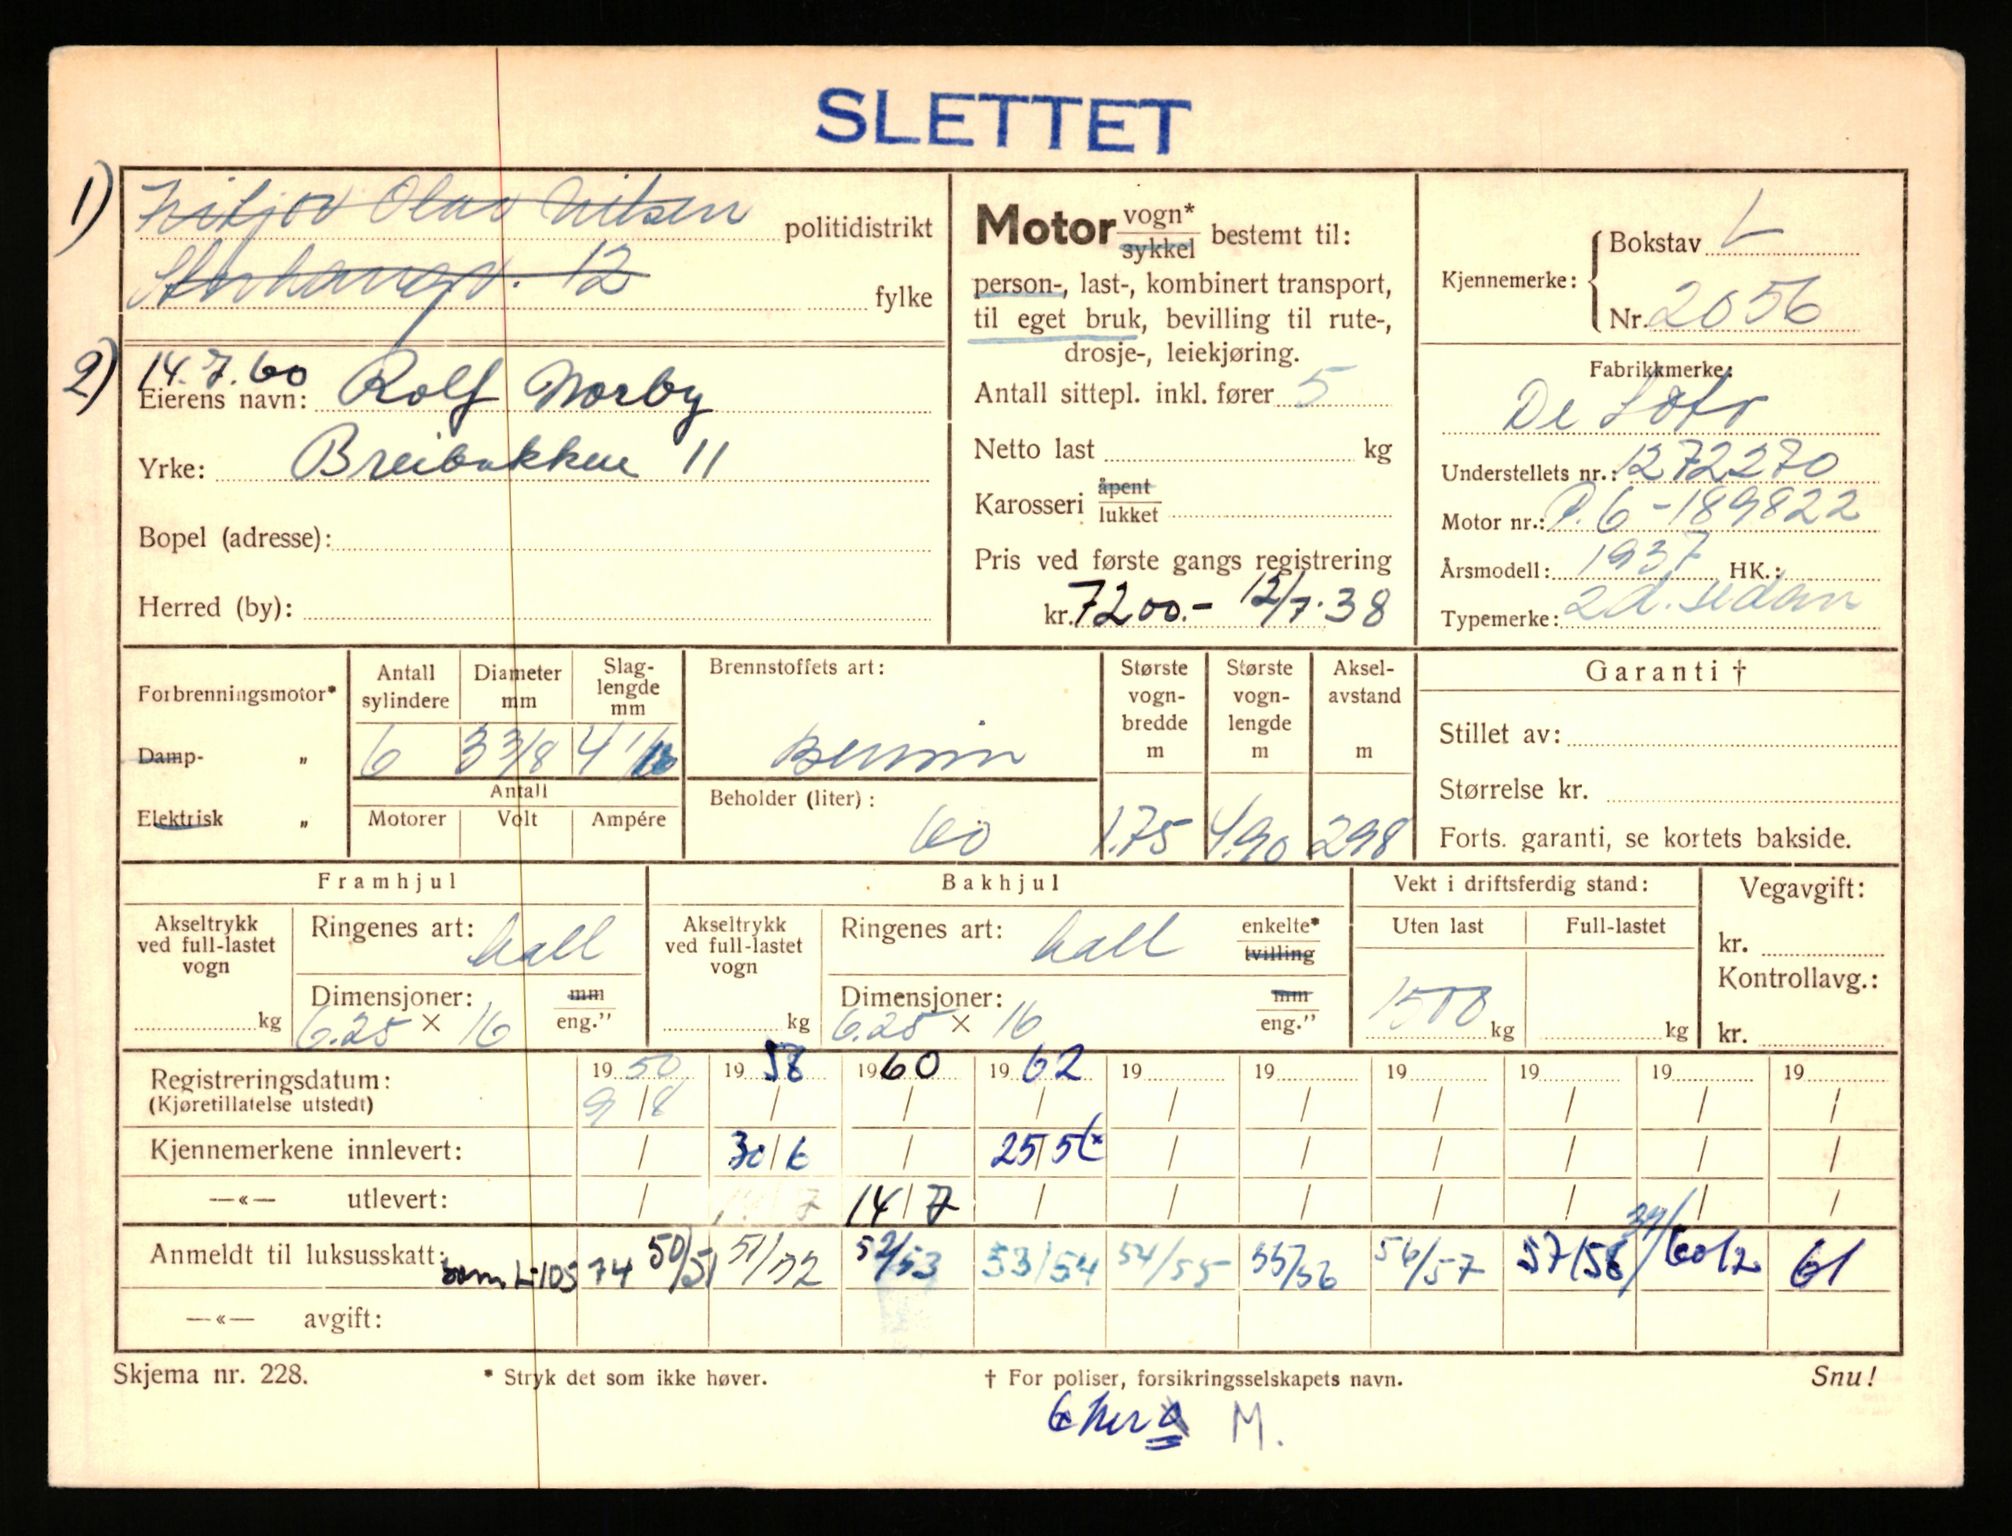 SLETTET
1) Fritjov Olav Nilsen politidistrikt
Storhaugv. 12 fylke
2) 14.7.60
Eierens navn: Rolf Norby
Yrke: Breibakken 11
Bopel (adresse):
Herred (by):
Motor vogn* / sykkel bestemt til:
person-, last-, kombinert transport,
til eget bruk, bevilling til rute-,
drosje-, leiekjøring.
Antall sittepl. inkl. fører 5
Netto last kg
Karosseri åpent / lukket
Pris ved første gangs registrering
kr. 7200.- 12/7.38
Kjennemerke: Bokstav L
Nr. 2056
Fabrikkmerke:
De Soto
Understellets nr.: 1272270
Motor nr.: P.6-189822
Årsmodell: 1937 HK.:
Typemerke: 2d. sedan
Forbrenningsmotor*
Damp- „
Elektrisk „
Antall sylindere 6
Diameter mm 3 3/8
Slag-lengde mm 4 1/16
Antall
Motorer Volt Ampére
Brennstoffets art:
Bensin
Beholder (liter):
60
Største vogn-bredde m 1.75
Største vogn-lengde m 4.90
Aksel-avstand m 298
Garanti †
Stillet av:
Størrelse kr.
Forts. garanti, se kortets bakside.
Framhjul
Akseltrykk ved full-lastet vogn kg
Ringenes art: hall
Dimensjoner: 6.25 × 16 mm / eng.”
Bakhjul
Akseltrykk ved full-lastet vogn kg
Ringenes art: hall enkelte* / tvilling
Dimensjoner: 6.25 × 16 mm / eng.”
Vekt i driftsferdig stand:
Uten last Full-lastet
1500 kg kg
Vegavgift:
kr.
Kontrollavg.:
kr.
Registreringsdatum: 19 50 19 58 19 60 19 62 19 19 19 19 19 19
(Kjøretillatelse utstedt) 9/8 / / / / / / / / /
Kjennemerkene innlevert: / 30/6 / 25/5 / / / / / /
—«— utlevert: / 14/7 14/7 / / / / / / /
Anmeldt til luksusskatt: som L-105 74 50/51 51/52 52/53 53/54 54/55 55/56 56/57 57/58 60/2 61
—«— avgift:
Skjema nr. 228.
* Stryk det som ikke høver.
† For poliser, forsikringsselskapets navn.
Snu!
M.